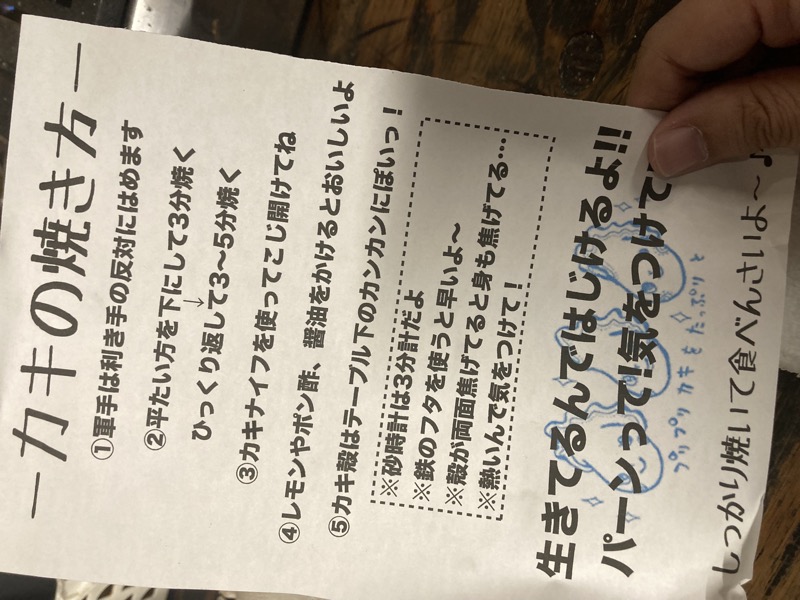 ーカキの焼き方ー
①軍手は利き手の反対にはめます
②平たい方を下にして3分焼く
↓
ひっくり返して3〜5分焼く
③カキナイフを使ってこじ開けてね
④レモンやポン酢、醤油をかけるとおいしいよ
⑤カキ殻はテーブル下のカンカンにぽいっ！
※砂時計は3分計だよ
※鉄のフタを使うと早いよ〜
※殻が両面焦げてると身も焦げてる…
※熱いんで気をつけて！
生きてるんではじけるよ!!
パーンって!気をつけて
プリプリカキをたっぷりと
しっかり焼いて食べんさいよ〜♪